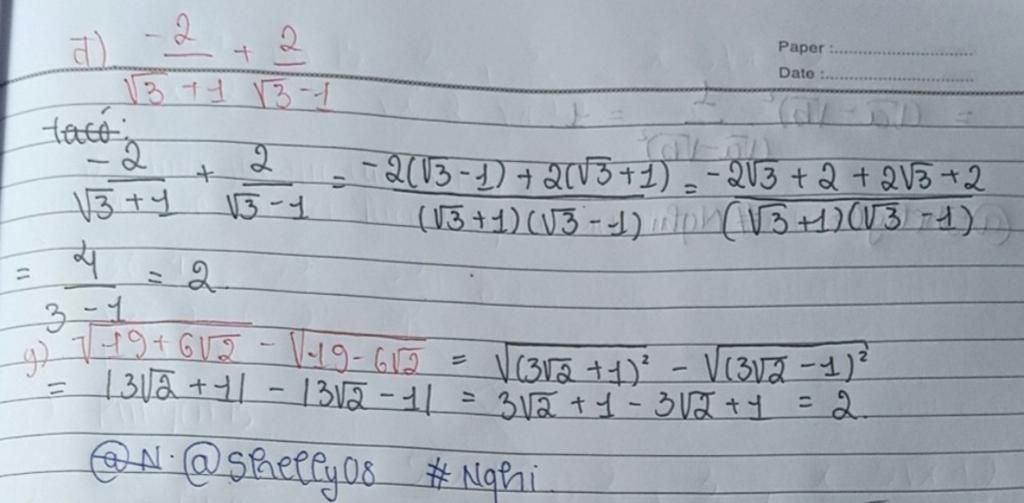 đ) -2/(√3 + 1) + 2/(√3 - 1)
Paper :
Date :
ta có:
-2/(√3 + 1) + 2/(√3 - 1) = (-2(√3 - 1) + 2(√3 + 1))/((√3 + 1)(√3 - 1)) = (-2√3 + 2 + 2√3 + 2)/((√3 + 1)(√3 - 1))
= 4/(3 - 1) = 2
g) √(19 + 6√2) - √(19 - 6√2) = √((3√2 + 1)²) - √((3√2 - 1)²)
= |3√2 + 1| - |3√2 - 1| = 3√2 + 1 - 3√2 + 1 = 2.
@N. @Shelly08 #Nghi